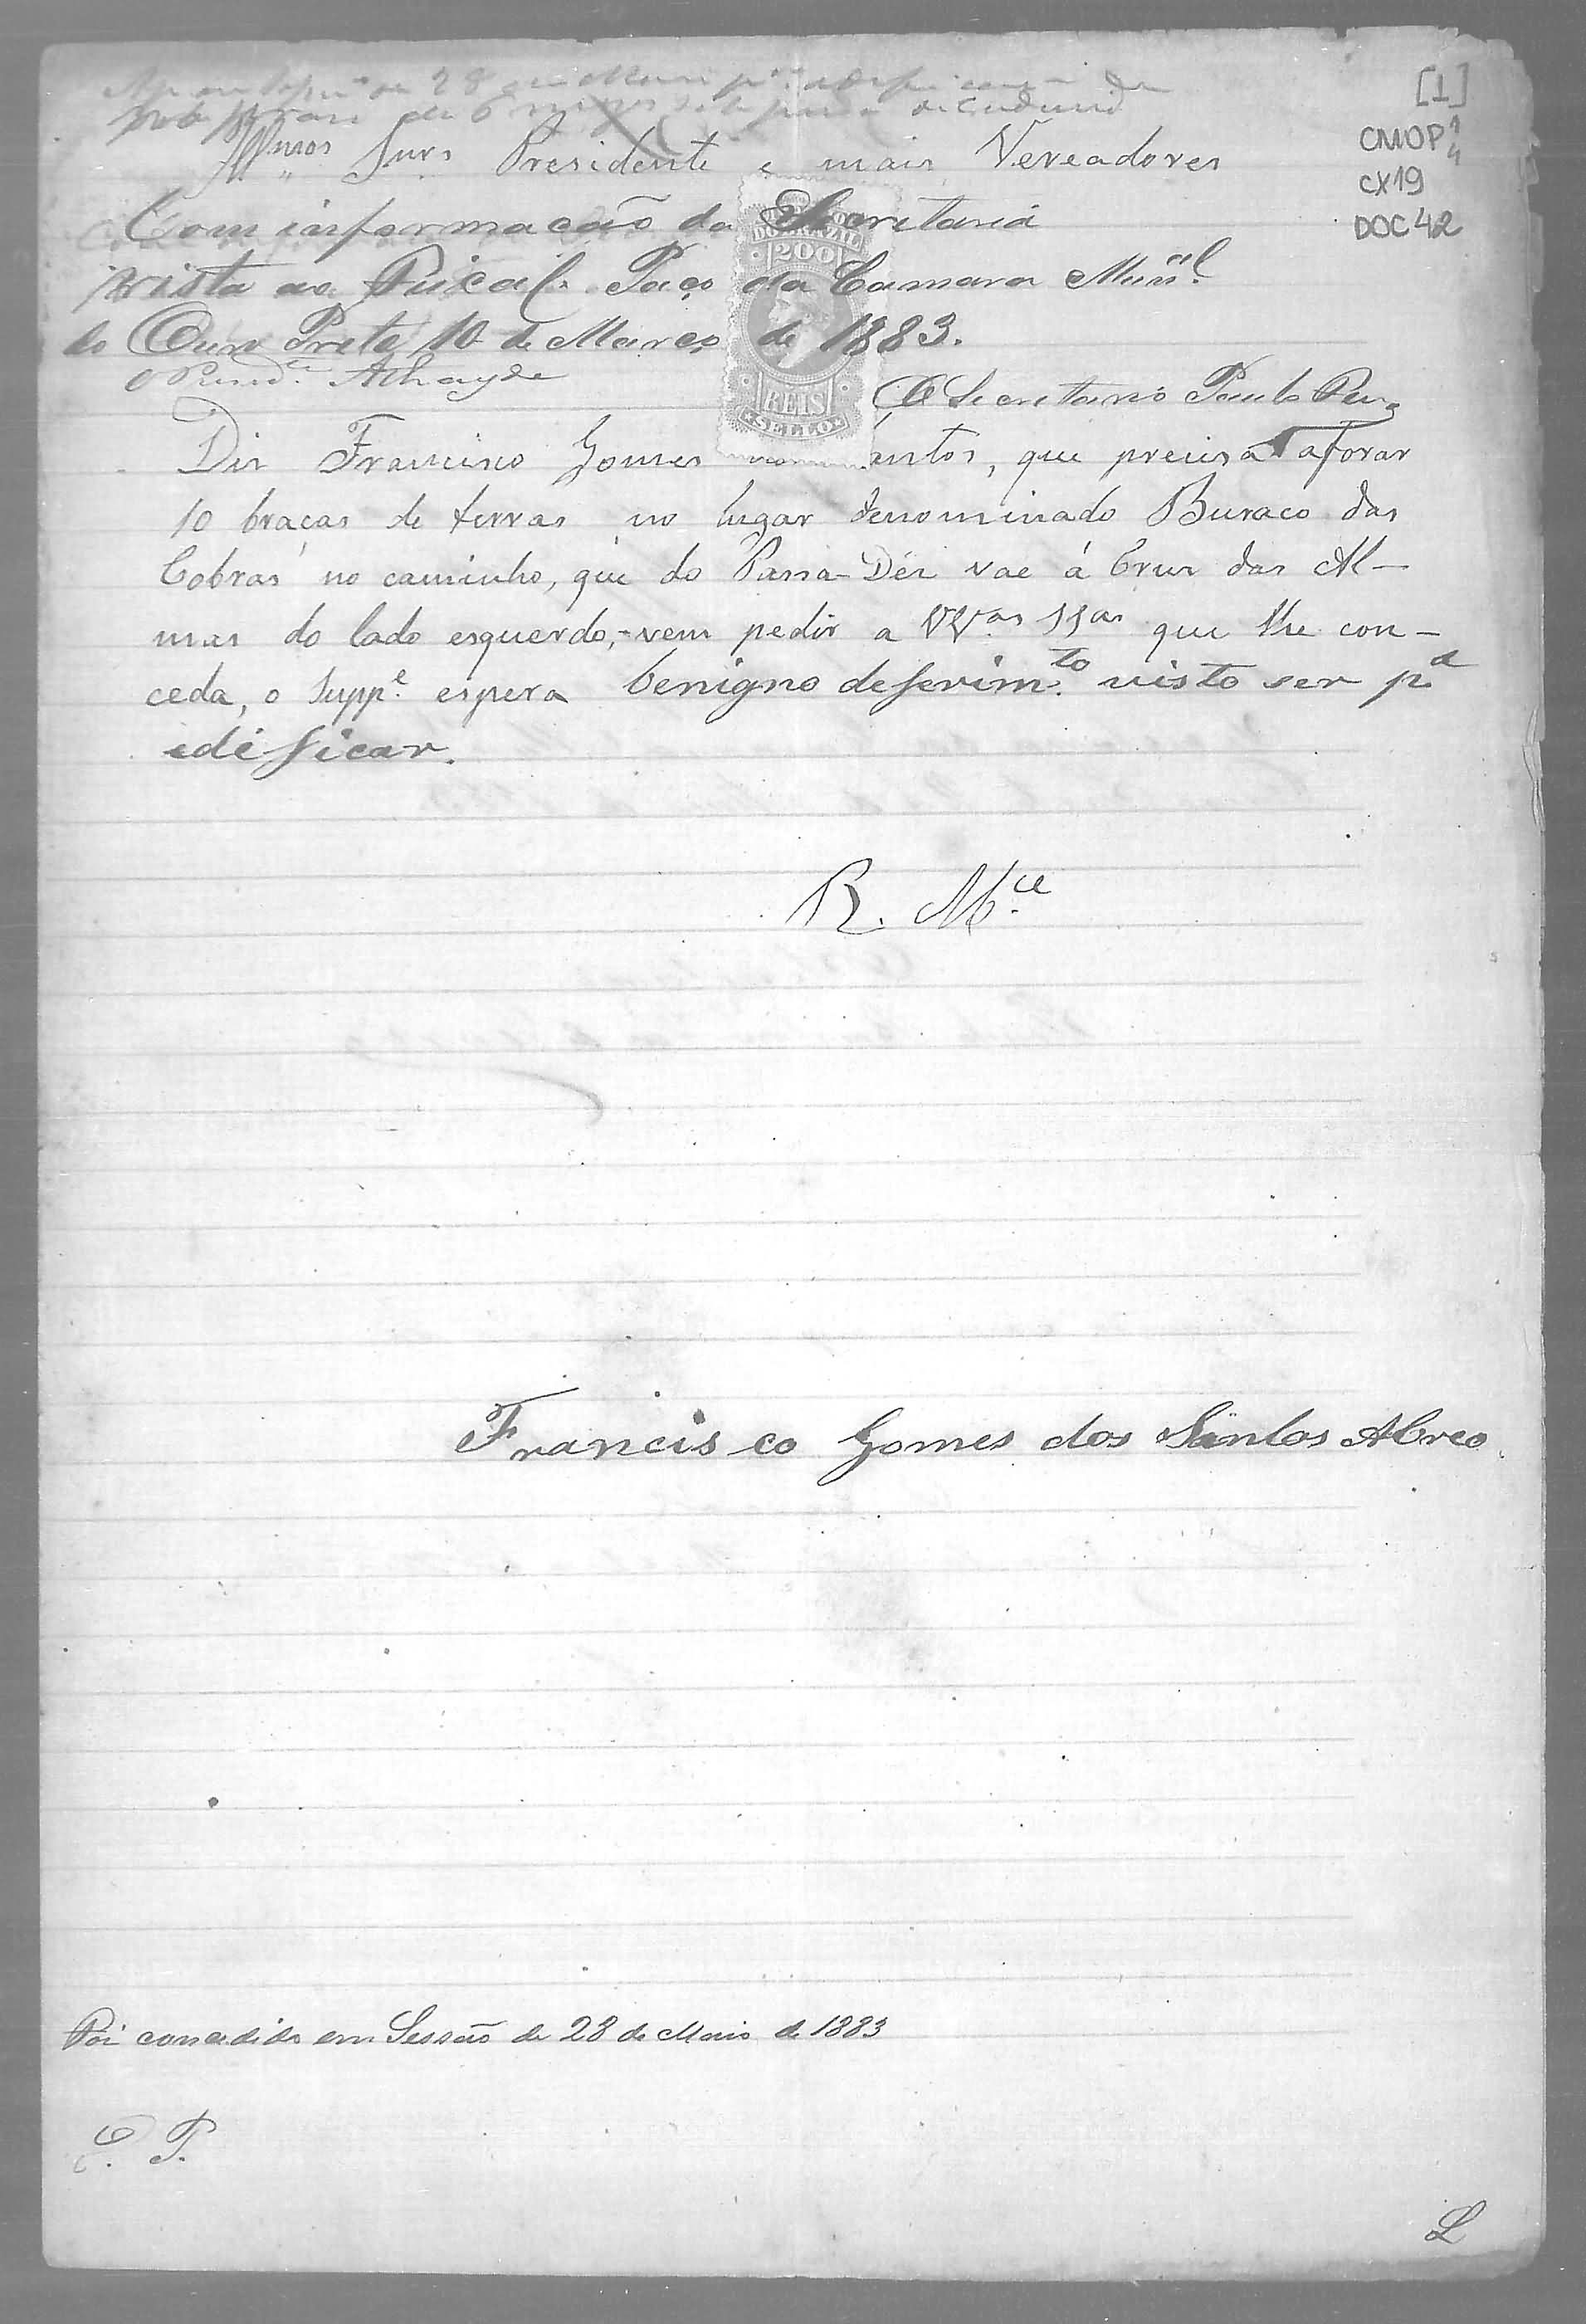 [1]
CMOP 1/4
CX19
DOC 42
28
Ill.mos Snrs Presidente e mais Vereadores
Com informação da Secretaria
vista ao Fiscal. Paço da Camara Mun.al
do Ouro Preto 10 de Março de 1883.
Athayde
O Secretario Paulo
DO BRAZIL
200
REIS
SELLO
Diz Francisco Gomes antos, que precisa aforar
10 braças de terras no lugar denominado Buraco das
Cobras no caminho, que do Passa-Dez vae á Cruz das Al-
mas do lado esquerdo, vem pedir a VV.as SSas que lhe con-
ceda, o Supp.e espera benigno deferim.to visto ser p.a
edificar.
R. M.ce
Francisco Gomes dos Santos Abreo
Foi concedido em Sessão de 28 de Maio de 1883
C. P.
L